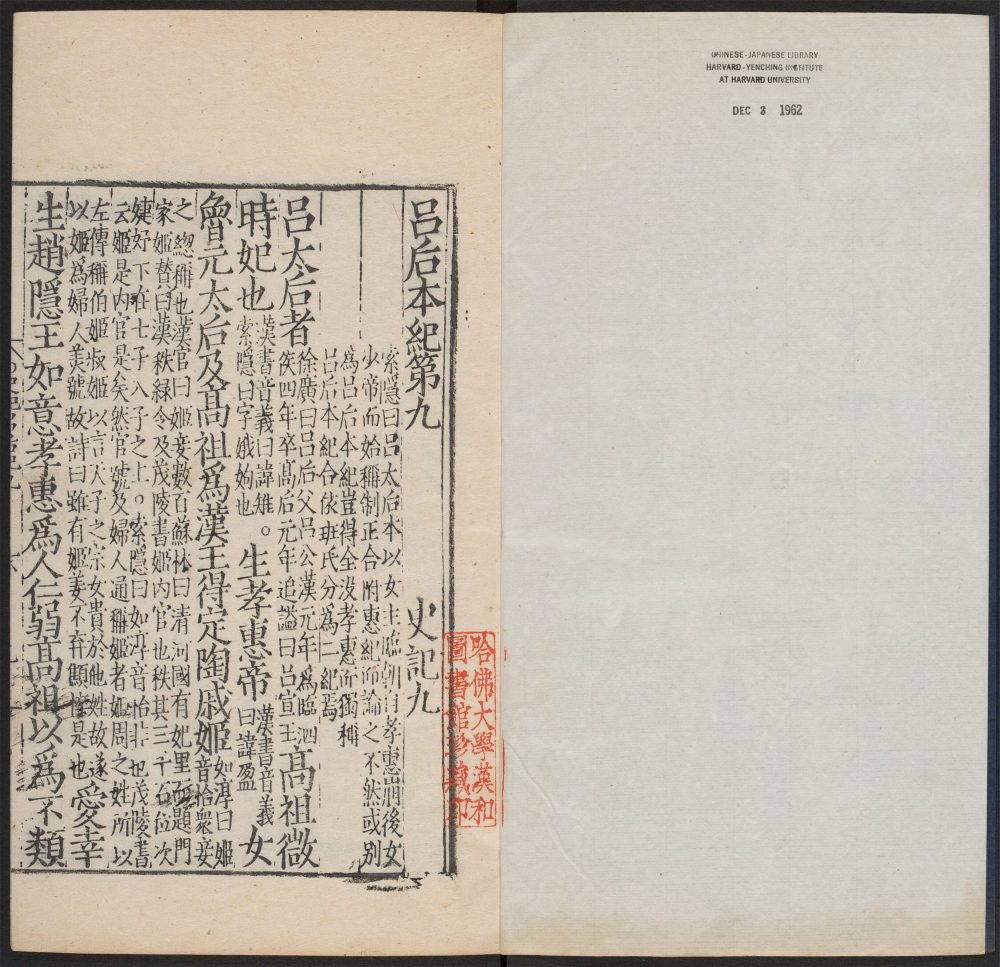 CHINESE-JAPANESE LIBRARY
HARVARD-YENCHING INSTITUTE
AT HARVARD UNIVERSITY
DEC 3 1962
哈佛大學漢和
圖書館珍藏印
呂后本紀第九 史記九
索隱曰呂太后本以女主臨朝自孝惠崩後女
少帝而始稱制正合附惠紀而論之不然或別
為呂后本紀豈得全沒孝惠而獨稱
呂后本紀合依班氏分為二紀焉
呂太后者
徐廣曰呂后父呂公漢元年為臨泗
侯四年卒高后元年追謚曰呂宣王
高祖微
時妃也
漢書音義曰諱雉。
索隱曰字娥姁也
生孝惠帝
漢書音義
曰諱盈
女
魯元太后及高祖爲漢王得定陶戚姬
如淳曰姬
音怡衆妾
之緫稱也漢官曰姬妾數百蘇林曰清河國有妃里而題門
家姬瓉曰漢秩綠令及茂陵書姬內官也秩其三千石位次
婕妤下在七子八子之上。索隱曰如淳音怡非也茂陵書
云姬是內官是矣然官號及婦人通稱姬者姬周之姓所以
左傳稱伯姬叔姬以言天子之宗女貴於他姓故遂
以姬爲婦人美號故詩曰雖有姬姜不弃顦悴是也
愛幸
生趙隱王如意孝惠爲人仁弱高祖以爲不類